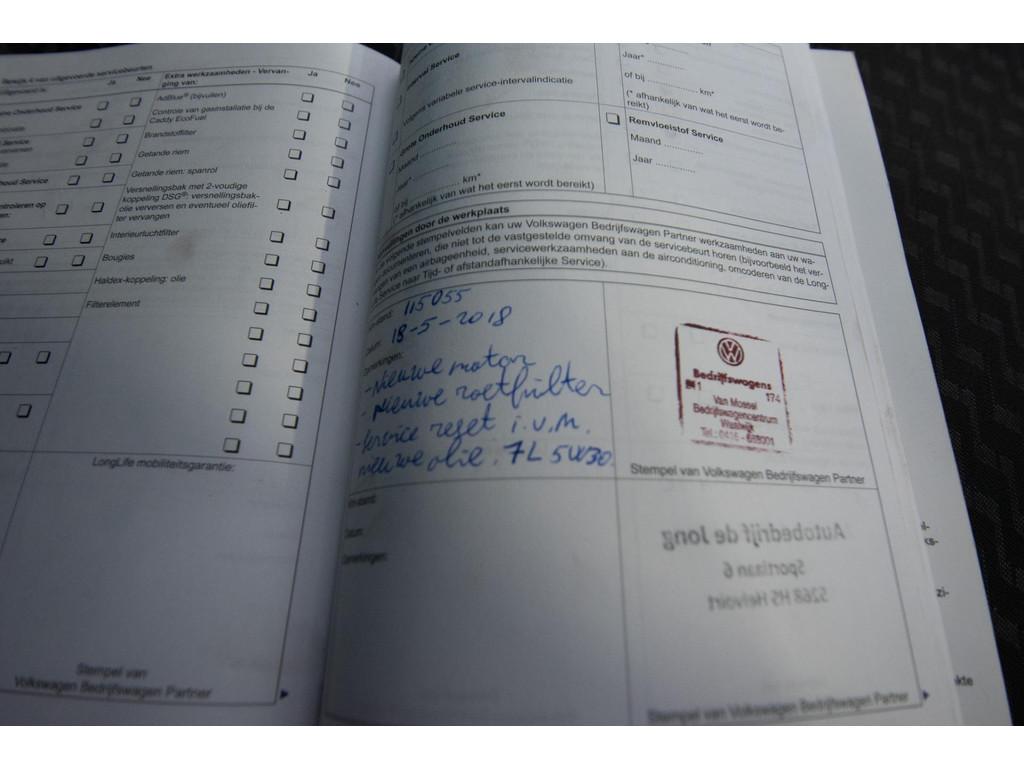 Ja
Nee
Extra werkzaamheden - Vervan-
ging van:
Ja
Nee
AdBlue® (bijvullen)
Controle van gasinstallatie bij de
Caddy EcoFuel
Brandstoffilter
Getande riem
Getande riem: spanrol
Versnellingsbak met 2-voudige
koppeling DSG®: versnellingsbak-
olie verversen en eventueel oliefil-
ter vervangen
Interieurluchtfilter
Bougies
Haldex-koppeling: olie
Filterelement
LongLife mobiliteitsgarantie:
Stempel van
Volkswagen Bedrijfswagen Partner
Interval Service
Volgens variabele service-intervalindicatie
Grote Onderhoud Service
Maand
Jaar*
of bij km*
(* afhankelijk van wat het eerst wordt bereikt)
Jaar*
of bij
km*
(* afhankelijk van wat het eerst wordt be-
reikt)
Remvloeistof Service
Maand
Jaar
door de werkplaats
stempelvelden kan uw Volkswagen Bedrijfswagen Partner werkzaamheden aan uw wa-
die niet tot de vastgestelde omvang van de servicebeurt horen (bijvoorbeeld het ver-
van een airbageenheid, servicewerkzaamheden aan de airconditioning, omcoderen van de Long-
Service naar Tijd- of afstandafhankelijke Service).
115055
Datum: 18-5-2018
Opmerkingen:
- Nieuwe motor
- Nieuwe roetfilter
- Service reset i.v.m.
nieuwe olie. 7L 5W30.
Bedrijfswagens
174
Van Mossel
Bedrijfswagencentrum
Waalwijk
Tel.: 0416 - 668001
Stempel van Volkswagen Bedrijfswagen Partner
Km-stand:
Datum:
Opmerkingen:
Autobedrijf de Jong
Sportlaan 6
5268 HS Helvoirt
Stempel van Volkswagen Bedrijfswagen Partner